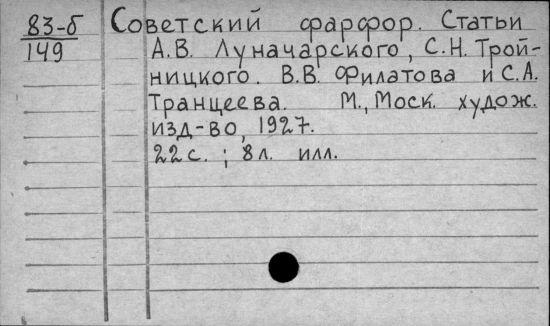 83-б Советский фарфор. Статьи
149 А.В. Луначарского, С.Н. Трой-
ницкого. В.В. Филатова и С.А.
Транцеева. М., Моск. худож.
изд-во, 1927.
22с. ; 8л. илл.